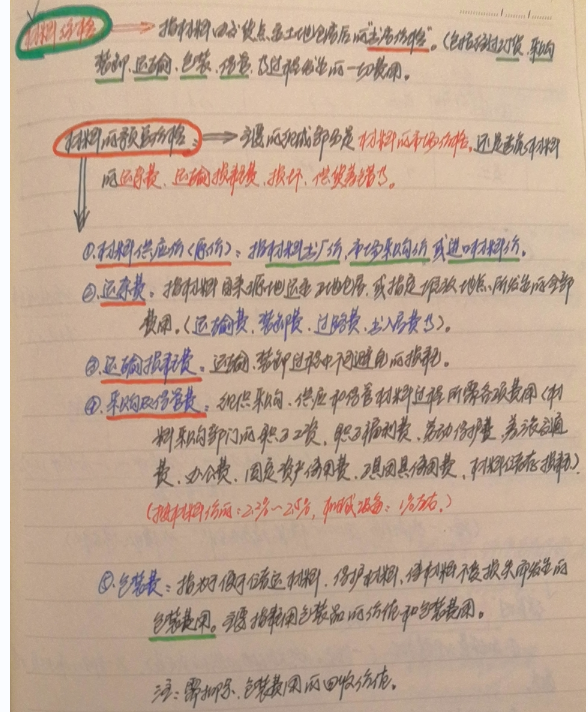 材料价格 → 指材料由交货点至工地仓库后的"出库价格"。(包括经过订货、采购
装卸、运输、包装、保管等过程发生的一切费用。
材料的预算价格: → 主要的组成部分是材料的市场价格,还是考虑材料
的运杂费、运输损耗费、损坏、供货差错等。
①材料供应价(原价):指材料出厂价,市场采购价或进口材料价。
②运杂费:指材料自来源地运至工地仓库,或指定堆放地点所发生的全部
费用。(运输费、装卸费、过路费、出入库费等)。
③运输损耗费:运输、装卸过程中不可避免的损耗。
④采购及保管费:组织采购、供应和保管材料过程所需各项费用(材
料采购部门的职工工资、职工福利费、劳动保护费、差旅交通
费、办公费、固定资产使用费、工具用具使用费、材料储存损耗)
(按材料价的:2.2%~2.5%,机械设备:1%左右。)
⑤包装费:指为了便于储运材料、保护材料、使材料不受损失而发生的
包装费用。主要指耗用包装品的价值和包装费用。
注:需扣除、包装费用的回收价值。